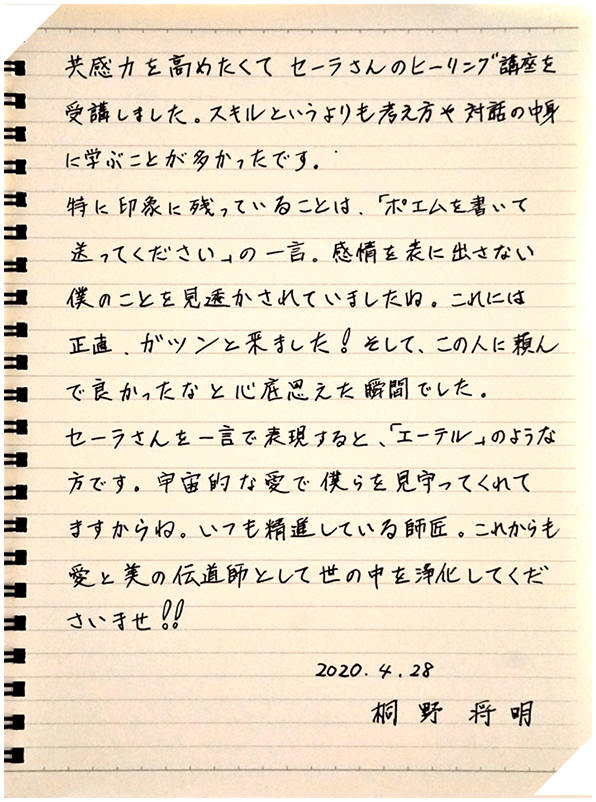 共感力を高めたくて セーラさんのヒーリング講座を
受講しました。スキルというよりも考え方や対話の中身
に学ぶことが多かったです。
特に印象に残っていることは、「ポエムを書いて
送ってください」の一言。感情を表に出さない
僕のことを見透かされていましたね。これには
正直、ガツンと来ました!そして、この人に頼ん
で良かったなと心底思えた瞬間でした。
セーラさんを一言で表現すると、「エーテル」のような
方です。宇宙的な愛で僕らを見守ってくれて
ますからね。いつも精進している師匠。これからも
愛と美の伝道師として世の中を浄化してくだ
さいませ!!
2020.4.28
桐野 将明